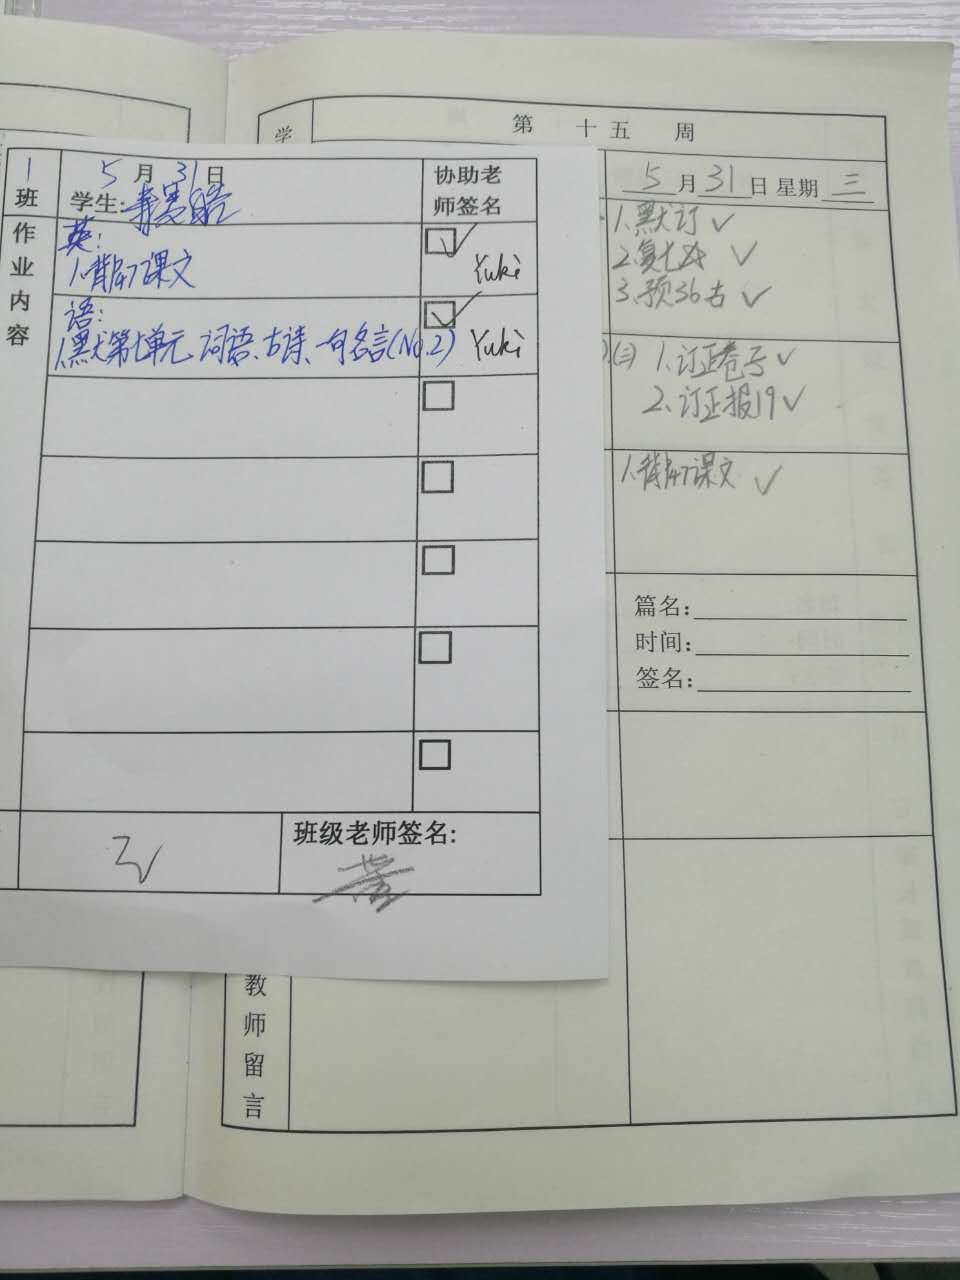 学
第 十五 周
1
班
5月31日
学生:
协助老
师签名
作
业
内
容
英:
1.背4,7课文
Yuki
语:
1.默第七单元 词语、古诗、一句名言(No.2)
Yuki
班级老师签名:
5月31日 星期三
1.默订✓
2.复七 ✓
3.预36古✓
(三) 1.订正卷
2.订正报19✓
1.背4,7课文 ✓
篇名:
时间:
签名:
教
师
留
言